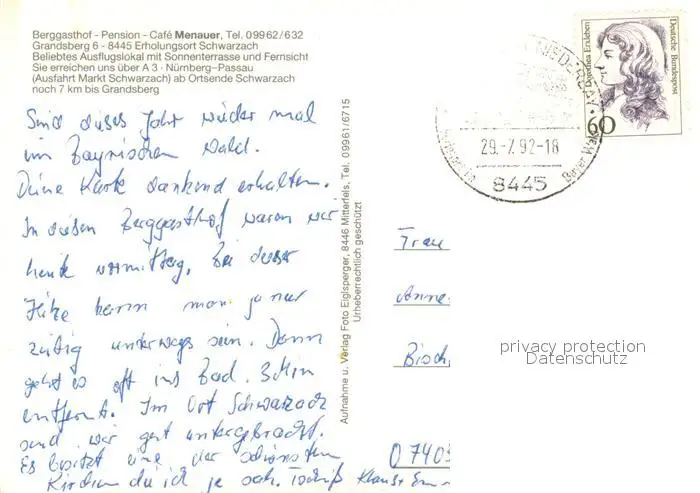 Berggasthof - Pension - Café Menauer, Tel. 09962/632
Grandsberg 6 - 8445 Erholungsort Schwarzach
Beliebtes Ausflugslokal mit Sonnenterrasse und Fernsicht
Sie erreichen uns über A 3 · Nürnberg–Passau
(Ausfahrt Markt Schwarzach) ab Ortsende Schwarzach
noch 7 km bis Grandsberg
Sind dieses Jahr wieder mal
im Bayrischen Wald.
Deine Karte dankend erhalten.
In diesem Berggasthof waren wir
heute vormittag. Bei dieser
Hitze kann man ja nur
zeitig unterwegs sein. Dann
geht es oft ins Bad. 3 Min
entfernt. Im Ort Schwarzach
sind wir gut untergebracht.
Es besitzt eine der schönsten
Kirchen die ich je sah. Tschüß Klaus +
Aufnahme u. Verlag Foto Eiglsperger, 8446 Mitterfels, Tel. 09961/6715
Urheberrechtlich geschützt
Dorothea Erxleben
Deutsche Bundespost
60
29.-7.92-18
8445
Frau
Anne
Bisch
O 740
privacy protection
Datenschutz